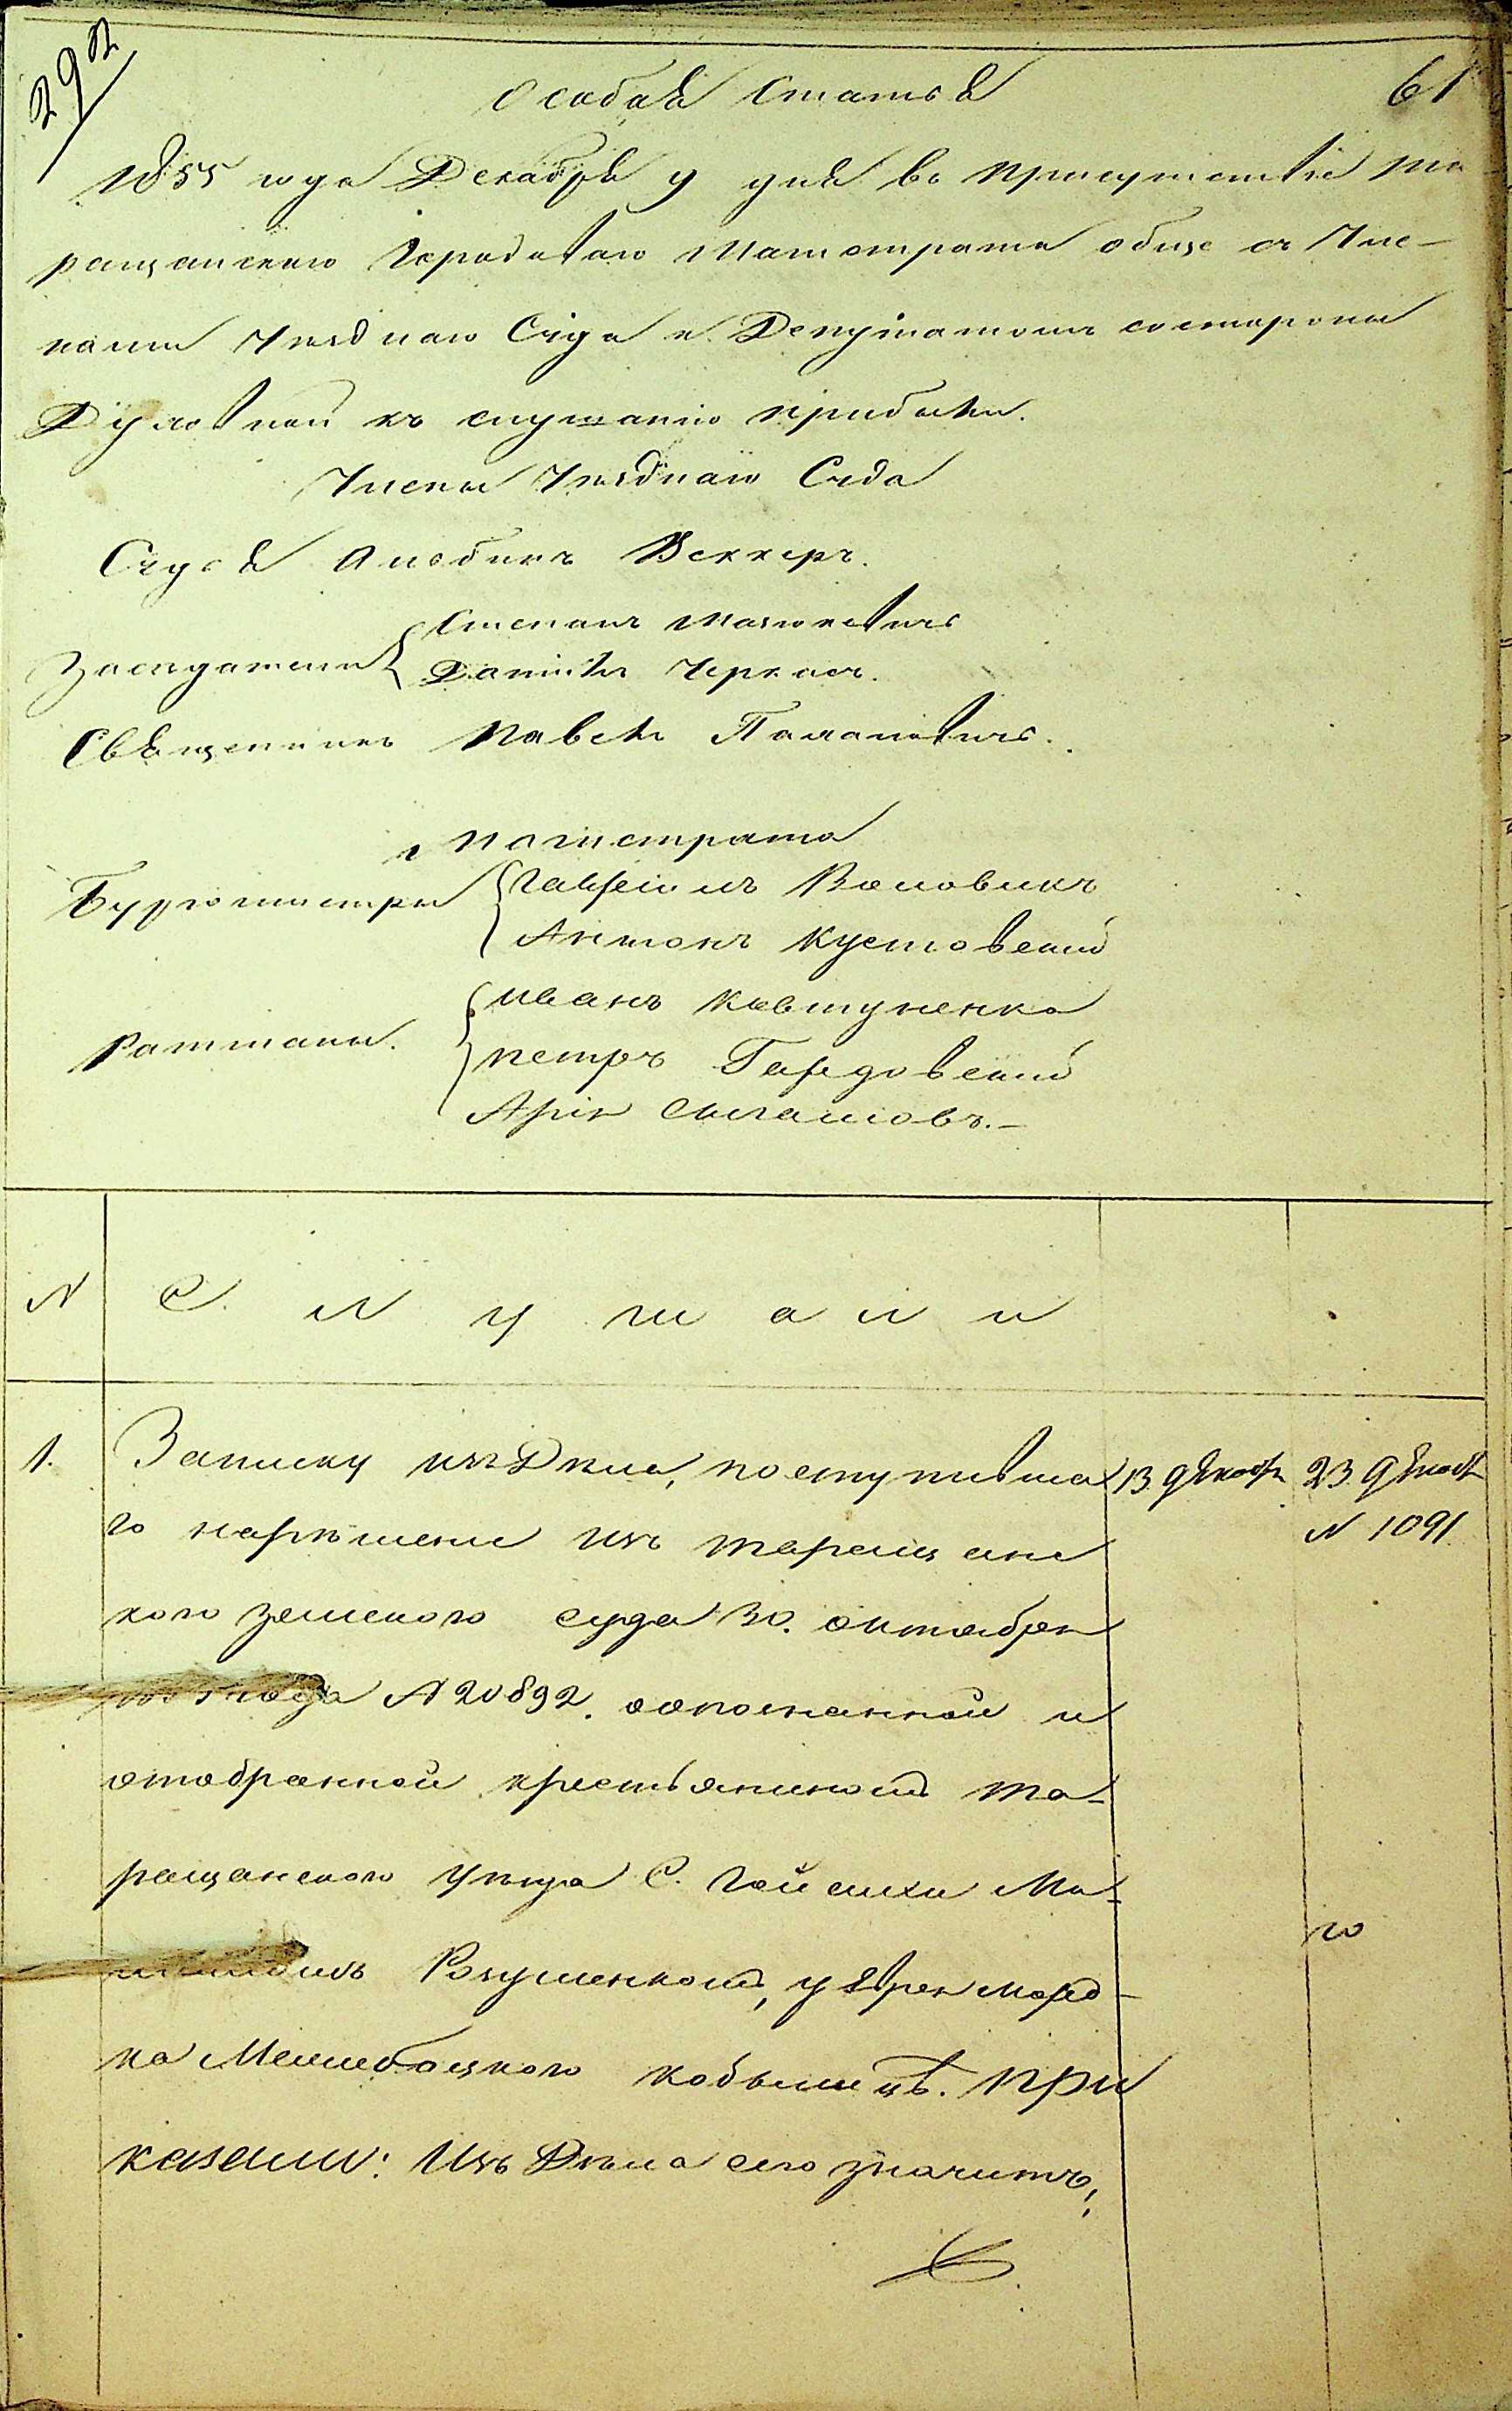 292
61
Особая Статья
1855 года Декабря 9 дня въ присутствіе Та-
ращанского Городоваго Магистрата обще съ Чле-
нами Уѣзднаго Суда и Депутатомъ состороны
Духовной къ слушанію прибыли.
Члены Уѣзднаго Суда
Судья Альбинъ Веккеръ.
Засѣдатели { Степанъ Махновичъ
Даніилъ Черкасъ.
Священникъ Павелъ Паланевичъ.
Магистрата
Бургомистры { Гавріилъ Воловикъ
Антонъ Кустовский
Ратманы. { Иванъ Ковтуненко
Петръ Гардовский
Арія Сигаловъ.-
N С Л У Ш А Л И
1. Записку изъ Дѣла, поступивша 13. Декабр 23. Декаб
го нарѣшение изъ таращанс N 1091.
кого земского суда 30. октября
года N 20892. оопознанной и
отобранной крестьяниномъ Та-
ращанского уѣзда С. Гейсихи Ма-
Розуменкомъ, у Еврея Мор-
ка Межибоцкого кобылицѣ. При
казали: Изъ Дѣла сего значитъ,
го